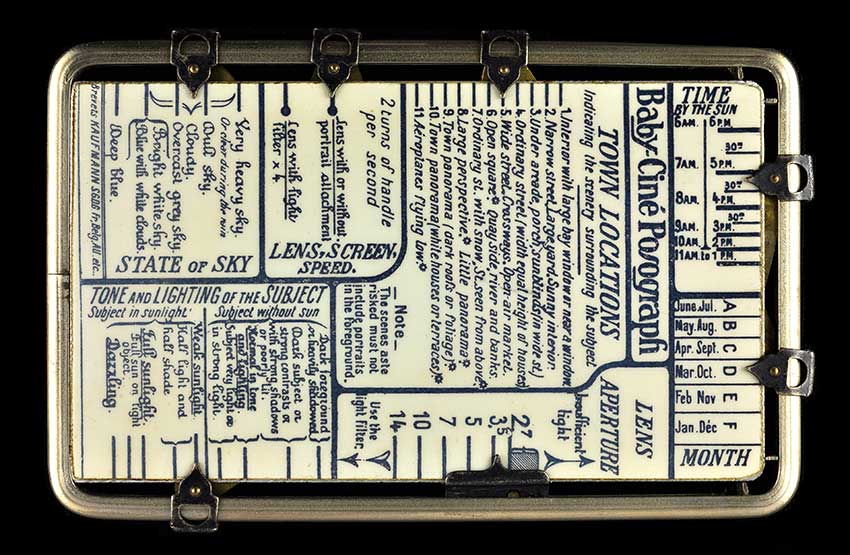 Baby-Ciné Posograph
TOWN LOCATIONS
Indicating the scenery surrounding the subject
1. Interior with large bay window or near a window
2. Narrow street, Large yard, Sunny interior
3. Under arcade, porch, sunblinds (in wide st.)
4. Ordinary street (width equal height of houses)
5. Wide street, Crossways, Open air market.
6. Open square. Quay side, river and banks
7. Ordinary st. with snow, St. seen from above.
8. Large perspective. Little panorama
9. Town panorama (dark roofs or foliage).
10. Town panorama (white houses or terraces).
11. Aeroplanes flying low.
TIME
BY THE SUN
6 A.M. 6 P.M.
30m
7 A.M. 5 P.M.
30m
8 A.M. 4 P.M.
30m
9 A.M. 3 P.M.
10 A.M. 2 P.M.
11 A.M. to 1 P.M.
June. Jul. A
May. Aug. B
Apr. Sept. C
Mar. Oct. D
Feb Nov E
Jan. Déc F
MONTH
2 turns of handle
per second
Lens with or without
portrait attachment
Lens with light
filter x 4.
LENS, SCREEN,
SPEED.
Very heavy sky.
Or other during the rain
Dull sky.
Cloudy.
Overcast grey sky
Bright white sky.
Blue with white clouds.
Deep blue.
STATE OF SKY
Brevets KAUFMANN S GDG Fr, Belg, All. etc..
TONE AND LIGHTING OF THE SUBJECT
Subject in sunlight
Subject without sun
Dark foreground
or heavily shadowed
Dark subject or
strong contrasts or
with strong shadows
or poorly lit.
Normal in tone
and lighting.
Subject very light or
in strong light.
Weak sunlight
Half light and
half shade
Full sunlight.
Full sun on light
object.
Dazzling.
Note
The scenes aste
risked must not
include portraits
in the foreground
LENS
APERTURE
Insufficient
light
2,7
3,5
5
7
10
14
Use the
light filter.